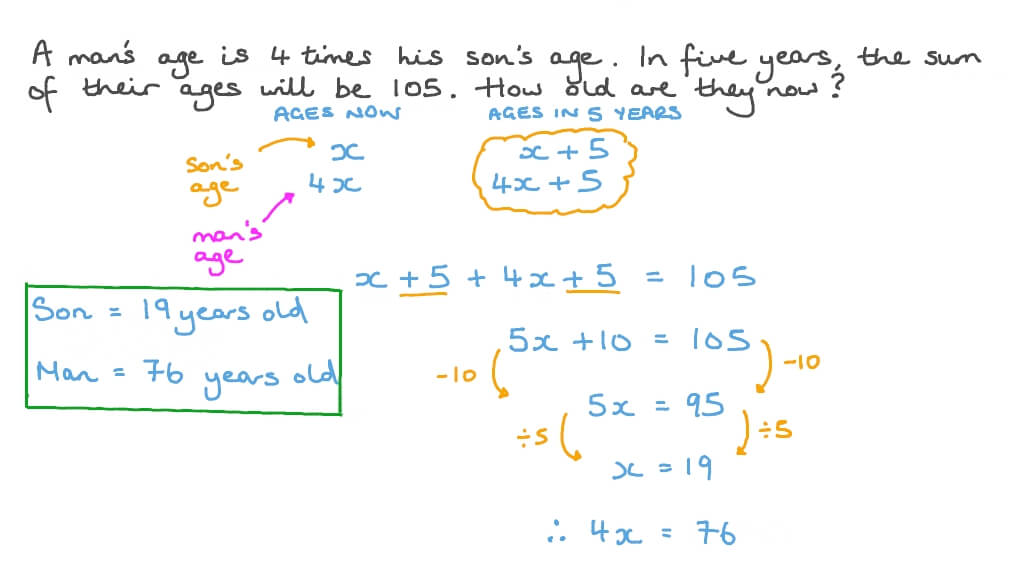 A man's age is 4 times his son's age. In five years, the sum
of their ages will be 105. How old are they now?
AGES NOW AGES IN 5 YEARS
son's age
x x + 5
4x 4x + 5
man's age
x + 5 + 4x + 5 = 105
Son = 19 years old
Man = 76 years old
5x + 10 = 105
-10 -10
5x = 95
÷5 ÷5
x = 19
∴ 4x = 76